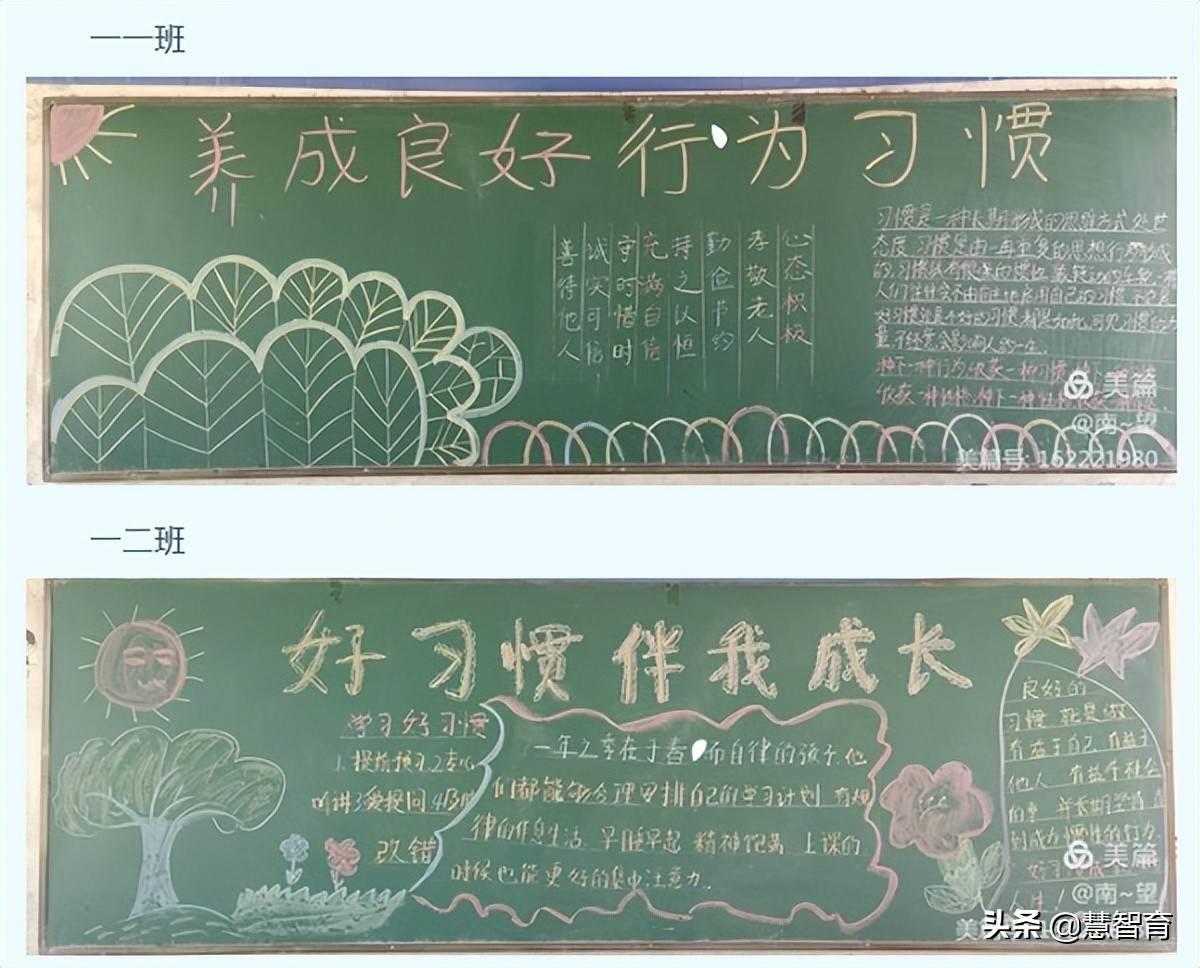 一一班
养成良好行为习惯
心态积极
孝敬老人
勤俭节约
持之以恒
充满自信
守时惜时
诚实可信
善待他人
习惯是一种长期形成的思维方式、处世
态度,习惯是由一再重复的思想行为形成
的,习惯具有很
人们往往会不由自主地启用自己的习惯,不论是
好习惯还是不好的习惯,都是如此,可见习惯的力
量不经意会影响人的一生。
种下一种行为,收获一种习惯
收获一种性格,种下一种性格
美篇
@南~望
美篇号: 162221980
一二班
好习惯伴我成长
学习好习惯
1.提前预习2.专心
听讲3.爱提问4.及时
改错
一年之季在于春 而自律的孩子,他
们都能够合理安排自己的学习计划 有规
律的作息生活 早睡早起 精神饱满 上课的
时候也能更好的集中注意力.
良好的
习惯 就是做
有益于自己 有益于
他人 有益于社会
的事 并长期坚持
到成为惯性的行为
好习惯
人生!
美篇
@南~望
头条 @慧智育